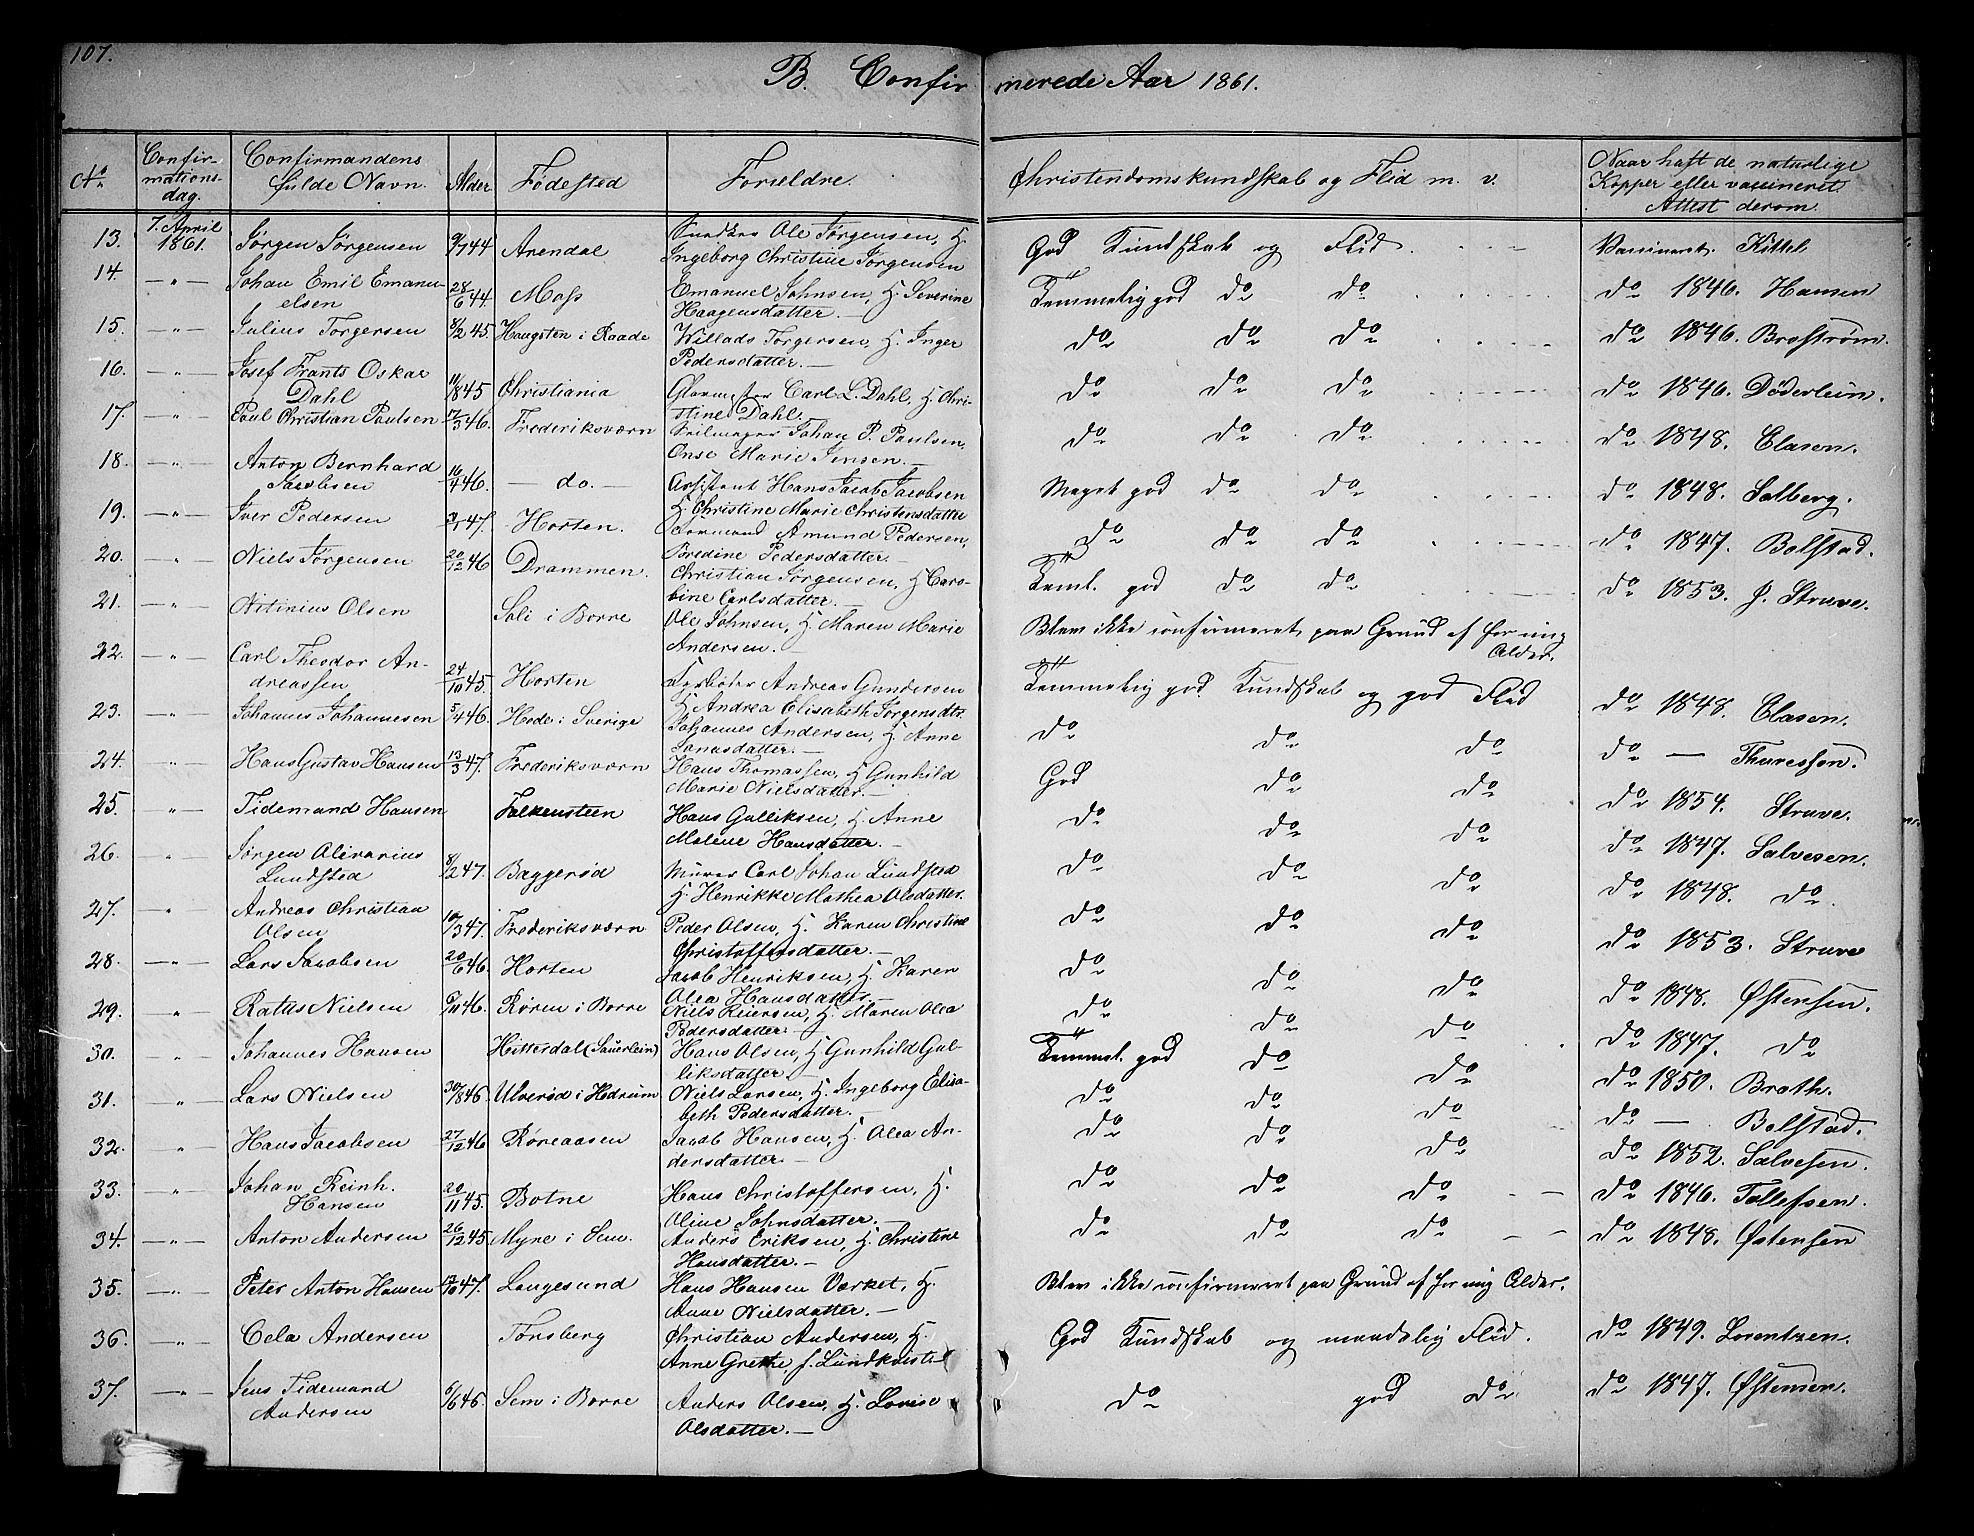 107.
B. Confirmerede Aar 1861.
No
Confir-
mations-
dag.
Confirmandens
fulde Navn.
Alder
Födested
Forældre.
Christendomskundskab og Flid m. v.
Naar haft de naturlige
Kopper eller vassineret
Attest derom.
13. 7. April 1861. Jørgen Jørgensen 9/7 44 Arendal Ole Jørgensen, H. Ingeborg Christine Jørgensen God Kundskab og Flid Vassineret Kittel
14. — " — Johan Emil Emanu-
elsen 28/6 44. Moss Emanuel Johnsen, H. Severine
Haagensdatter. — Temmelig god do do do 1846. Hansen
15. — " — Julius Torgersen 8/2 45. Haugsten i Raade Willads Torgersen, H. Inger
Pedersdatter. — do do do do 1846. Broström.
16. — " — Josef Frants Oskar
Dahl 11/8 45 Christiania Carl L. Dahl, H. Chri-
stine Dahl. do do do do 1846. Döderlein.
17. — " — Paul Christian Paulsen 17/3 46. Frederiksværn Seilmager Johan P. Paulsen,
Onse Marie Jensen. — do do do do 1848. Clasen.
18. — " — Anton Bernhard
Jacobsen 16/4 46. — do. — Assistent Hans Jacob Jacobsen
H. Christine Marie Christensdatter Meget god do do do 1848. Solberg.
19. — " — Iver Pedersen 3/1 47. Horten. Amund Pedersen,
Bredine Pedersdatter. — do do do do 1847. Bolstad.
20. — " — Niels Jörgensen 20/12 46 Drammen. Christian Jörgensen, H. Caro-
bine Carlsdatter. — Teml. god do do do 1853. f. Struve.
21. — " — Nitinius Olsen Soli i Borre Ole Johnsen, H. Maren Marie
Andersen. Blev ikke confirmeret paa Grund af for ung
Alder.
22. — " — Carl Theodor An-
dreassen 24/10 45. Horten Andreas Gundersen
H. Andrea Elisabeth Jørgensdtr. Temmelig god Kundskab og god Flid do 1848. Clasen.
23. — " — Johannes Johannesen 5/4 46. Hede i Sverige Johannes Andersen, H. Anne
Jonasdatter. — do do do do — Thoressen.
24. — " — Hans Gustav Hansen 13/3 47. Frederiksværn Hans Thomassen, H. Gunhild
Marie Nielsdatter. — God do do do 1854. Struve.
25. — " — Tidemand Hansen Falkensteen Hans Gulliksen, H. Anne
Malene Hansdatter. — do do do do 1847. Salvesen.
26. — " — Jørgen Alivarius
Lundsted 8/2 47. Baggerød Murer Carl Johan Lundsted
H. Henrikke Mathea Olsdatter. do do do do 1848. do.
27. — " — Andreas Christian
Olsen 10/3 47. Frederiksværn Peder Olsen, H. Karen Christine
Christoffersdatter. — do do do do 1853. Struve
28. — " — Lars Jacobsen 20/6 46 Horten Jacob Henriksen, H. Karen
Olea Hansdatter. — do do do do 1848. Østensen.
29. — " — Ratus Nielsen 6/11 46. Røren i Borre Niels Reiersen, H. Maren Olea
Pedersdatter. — do do do do 1847. do
30. — " — Johannes Hansen Hitterdal (Sauerlein) Hans Olsen, H. Gunhild Gul-
liksdatter. — Temmel. god do do do 1850. Broth.
31. — " — Lars Nielsen 30/8 46 Ulverød i Hedrum Niels Larsen, H. Ingeborg Elisa-
beth Pedersdatter. — do do do do — Bolstad.
32. — " — Hans Jacobsen 27/12 46 Røreaasen Jacob Hansen, H. Olea An-
dersdatter. — do do do do 1852. Salvesen.
33. — " — Johan Reinh.
Hansen 20/11 45. Botne Hans Christoffersen, H.
Oline Johnsdatter. — do do do do 1846. Tollefsen.
34. — " — Anton Andersen 26/12 45 Myre i Sem. Anders Eriksen, H. Christine
Hansdatter. — do do do do 1848. Østensen
35. — " — Peter Anton Hansen 17/10 47. Langesund Hans Hansen Værket, H.
Anne Nielsdatter. — Blev ikke confirmeret paa Grund af for ung Alder.
36. — " — Cela Andersen Tønsberg Christian Andersen, H.
Anne Grethe, f. Lundkvist — God Kundskab og maadelig Flid. do 1849. Lorentzen.
37. — " — Jens Tidemand
Andersen 6/6 46. Sem i Borre Anders Olsen, H. Lovise
Olsdatter. — do god do do 1847. Østensen.